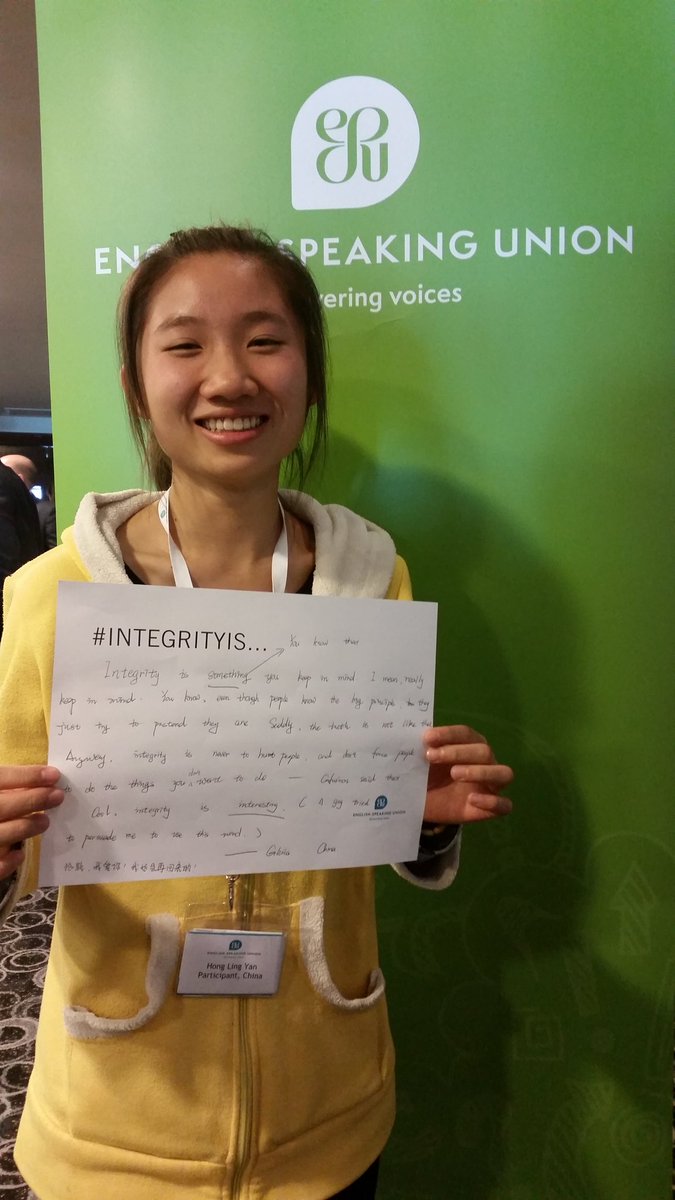 ENGLISH SPEAKING UNION
vering voices
#INTEGRITYIS...
You know that
Integrity is something you keep in mind. I mean, really
keep in mind. You know, even though people know the big they
just try to pretend they are the truth is not like that
Anyway, integrity is never to hurt people, and don't force people
to do the things you don't want to do — said that
Cool, integrity is interesting. ( A guy tried
ENGLISH SPEAKING UNION
to persuade me to use this word )
— China
ENGLISH SPEAKING UNION
Hong Ling Yan
Participant, China